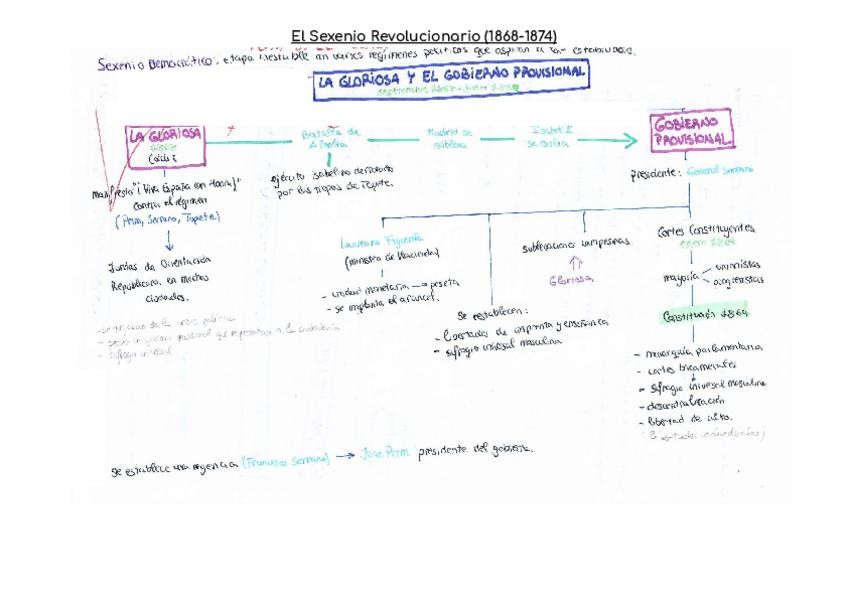 El Sexenio Revolucionario (1868-1874)
Sexenio Democrático: etapa inestable en varios regímenes políticos que aspiran a la estabilidad.
LA GLORIOSA Y EL GOBIERNO PROVISIONAL
septiembre 1868 - junio 1869
LA GLORIOSA
1868
Cádiz
Batalla de
Alcolea
Madrid se
subleva
Isabel II
se exilia
GOBIERNO
PROVISIONAL
manifiesto "¡Viva España con Honra!"
contra el régimen
(Prim, Serrano, Topete)
ejército isabelino derrotado
por las tropas de Topete.
presidente: General Serrano
Juntas de Orientación
Republicana en muchas
ciudades.
Laureano Figuerola
(ministro de Hacienda)
- unidad monetaria → peseta
- se implanta el arancel.
Se establecen:
- libertades de imprenta y enseñanza
- sufragio universal masculino
sublevaciones campesinas
Gloriosa
Cortes Constituyentes
enero 1869
mayoría
unionistas
progresistas
Constitución 1869
- monarquía parlamentaria
- cortes bicamerales
- sufragio universal masculino
- descentralización
- libertad de culto.
- sufragio universal
Se establece una regencia (Francisco Serrano) → Juan Prim presidente del gobierno.